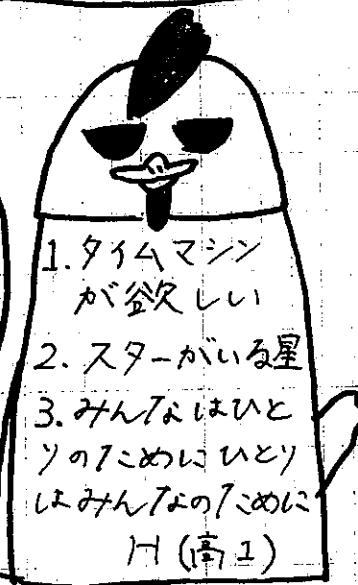 1. タイムマシン
が欲しい
2. スターがいる星
3. みんなはひと
りのためにひとり
はみんなのために
H (高1)